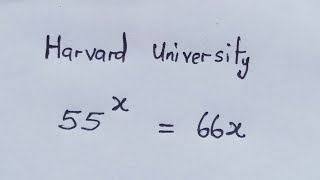 Harvard University
55^x = 66x